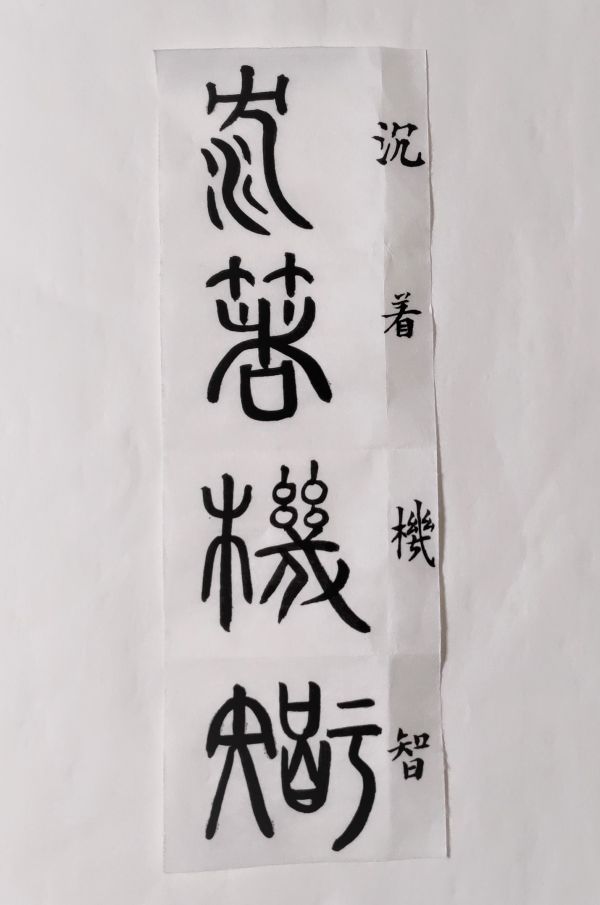 沉着機智
沉着機智